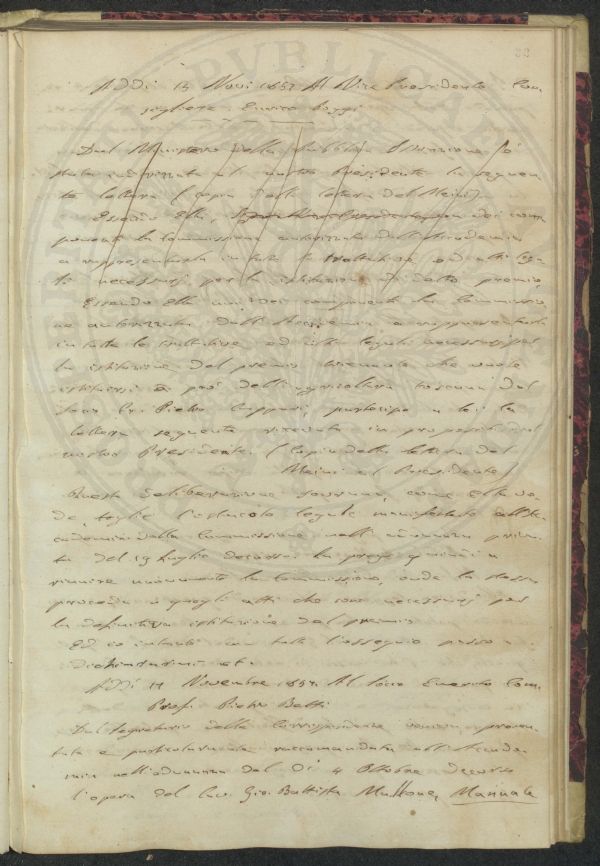 Addì 13 Nov. 1857 Al Vice Presidente Con
sigliere Enrico Poggi
Dal Ministero della Pubblica Istruzione è
stata indirizzata al nostro Presidente la seguen
te lettera (copia della lettera del Meini)
Essendo Ella, uno dei com
ponenti la Commissione autorizzata dall'Accademia
a rappresentarla in tutte le trattative, ed atti le
necessarj per la istituzione di detto premio
Essendo Ella uno dei componenti la Commissio
ne autorizzata dall'Accademia a rappresentarla
in tutte le trattative ed atti legali necessarj per
la istituzione del premio triennale che vuole
istituirsi a prò dell'agricoltura toscana dal
socio Cav. Pietro Cuppari, partecipo a lei la
lettera seguente ricevuta in proposito dal
nostro Presidente. (Copia della lettera del
Meini al Presidente)
Questa deliberazione sovrana, come Ella ve
de, toglie l'ostacolo legale manifestato all'Ac
cademia dalla Commissione nell'adunanza priva
ta del 19 Luglio decorso. La prego quindi a
riunire nuovamente la Commissione, onde la stessa
proceda a quegli atti che sono necessarj per
la definitiva istituzione del premio
Ed io intanto con tutto l'ossequio passo a
dichiararmi et.
Addì Novembre 1857. Al Socio Emerito Com.
Prof. Pietro Betti
Dal Segretario delle Corrispondenze veniva presen
tata e particolarmente raccomandata all'Accade
mia nell'adunanza del Dì 4 Ottobre decorso
l'opera del Cav. Gio. Battista Mattone, Manuale